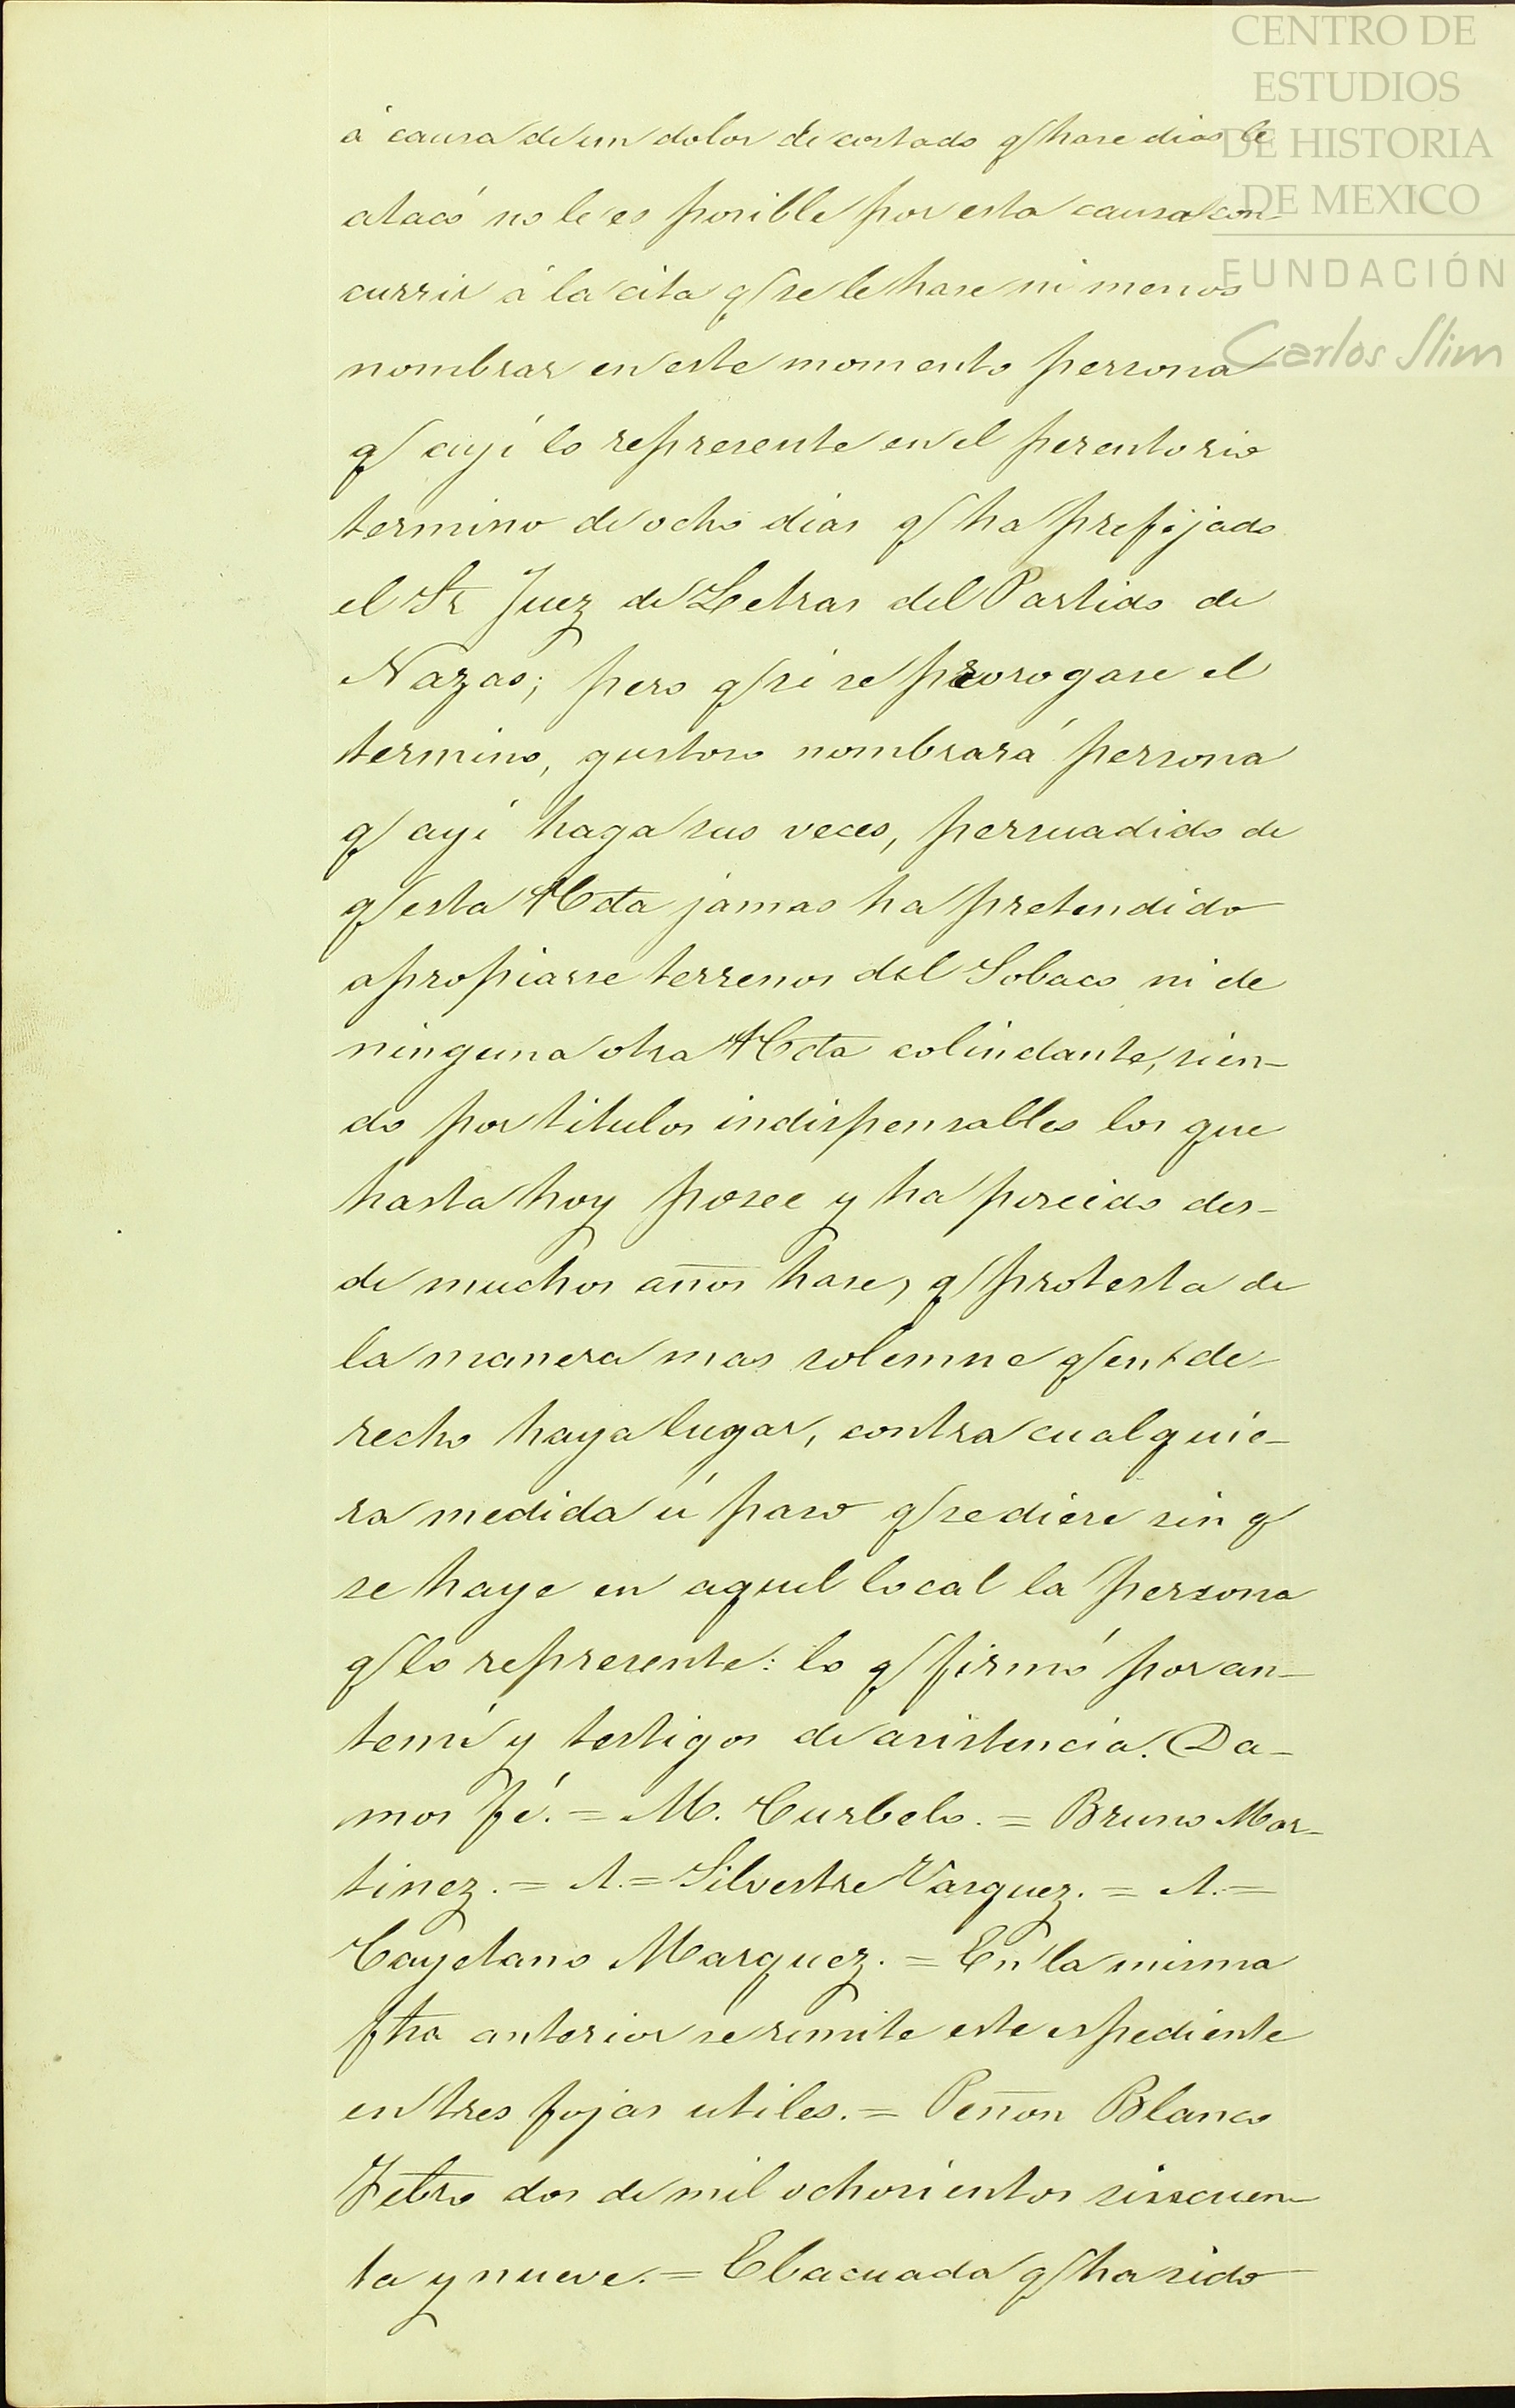 CENTRO DE
ESTUDIOS
DE HISTORIA
DE MEXICO
FUNDACIÓN
Carlos Slim
á causa de un dolor de costado q hase dias le
atacó no le es posible por esta causa con-
currir á la cita q se le hase ni menos
nombrar en este momento persona
q ayí lo represente en el perentorio
termino de ocho dias q ha prefijado
el Sr Juez de Letras del Partido de
Nazas; pero q si se prorogase el
termino, gustoso nombrará persona
q ayí haga sus veces, persuadido de
q esta Hda jamas ha pretendido
apropiarse terrenos del Sobaco ni de
ninguna otra Hda colindante, sien-
do por titulos indispensables los que
hasta hoy posee y ha poseido des-
de muchos años hase, q protesta de
la manera mas solemne q en de-
recho haya lugar, contra cualquie-
ra medida ú paso q se diere sin q
se haye en aquel local la persona
q lo represente: lo q firmó por an-
temí y testigos de asistencia. Da-
mos fé. = M. Curbelo. = Bruno Mar-
tinez. = A. = Silvestre Vasquez. = A. =
Cayetano Marquez. = En la misma
fha anterior se remite este espediente
en tres fojas utiles. = Peñon Blanco
Febro dos de mil ochosientos sinscuen-
ta y nueve. = Ebacuada q ha sido